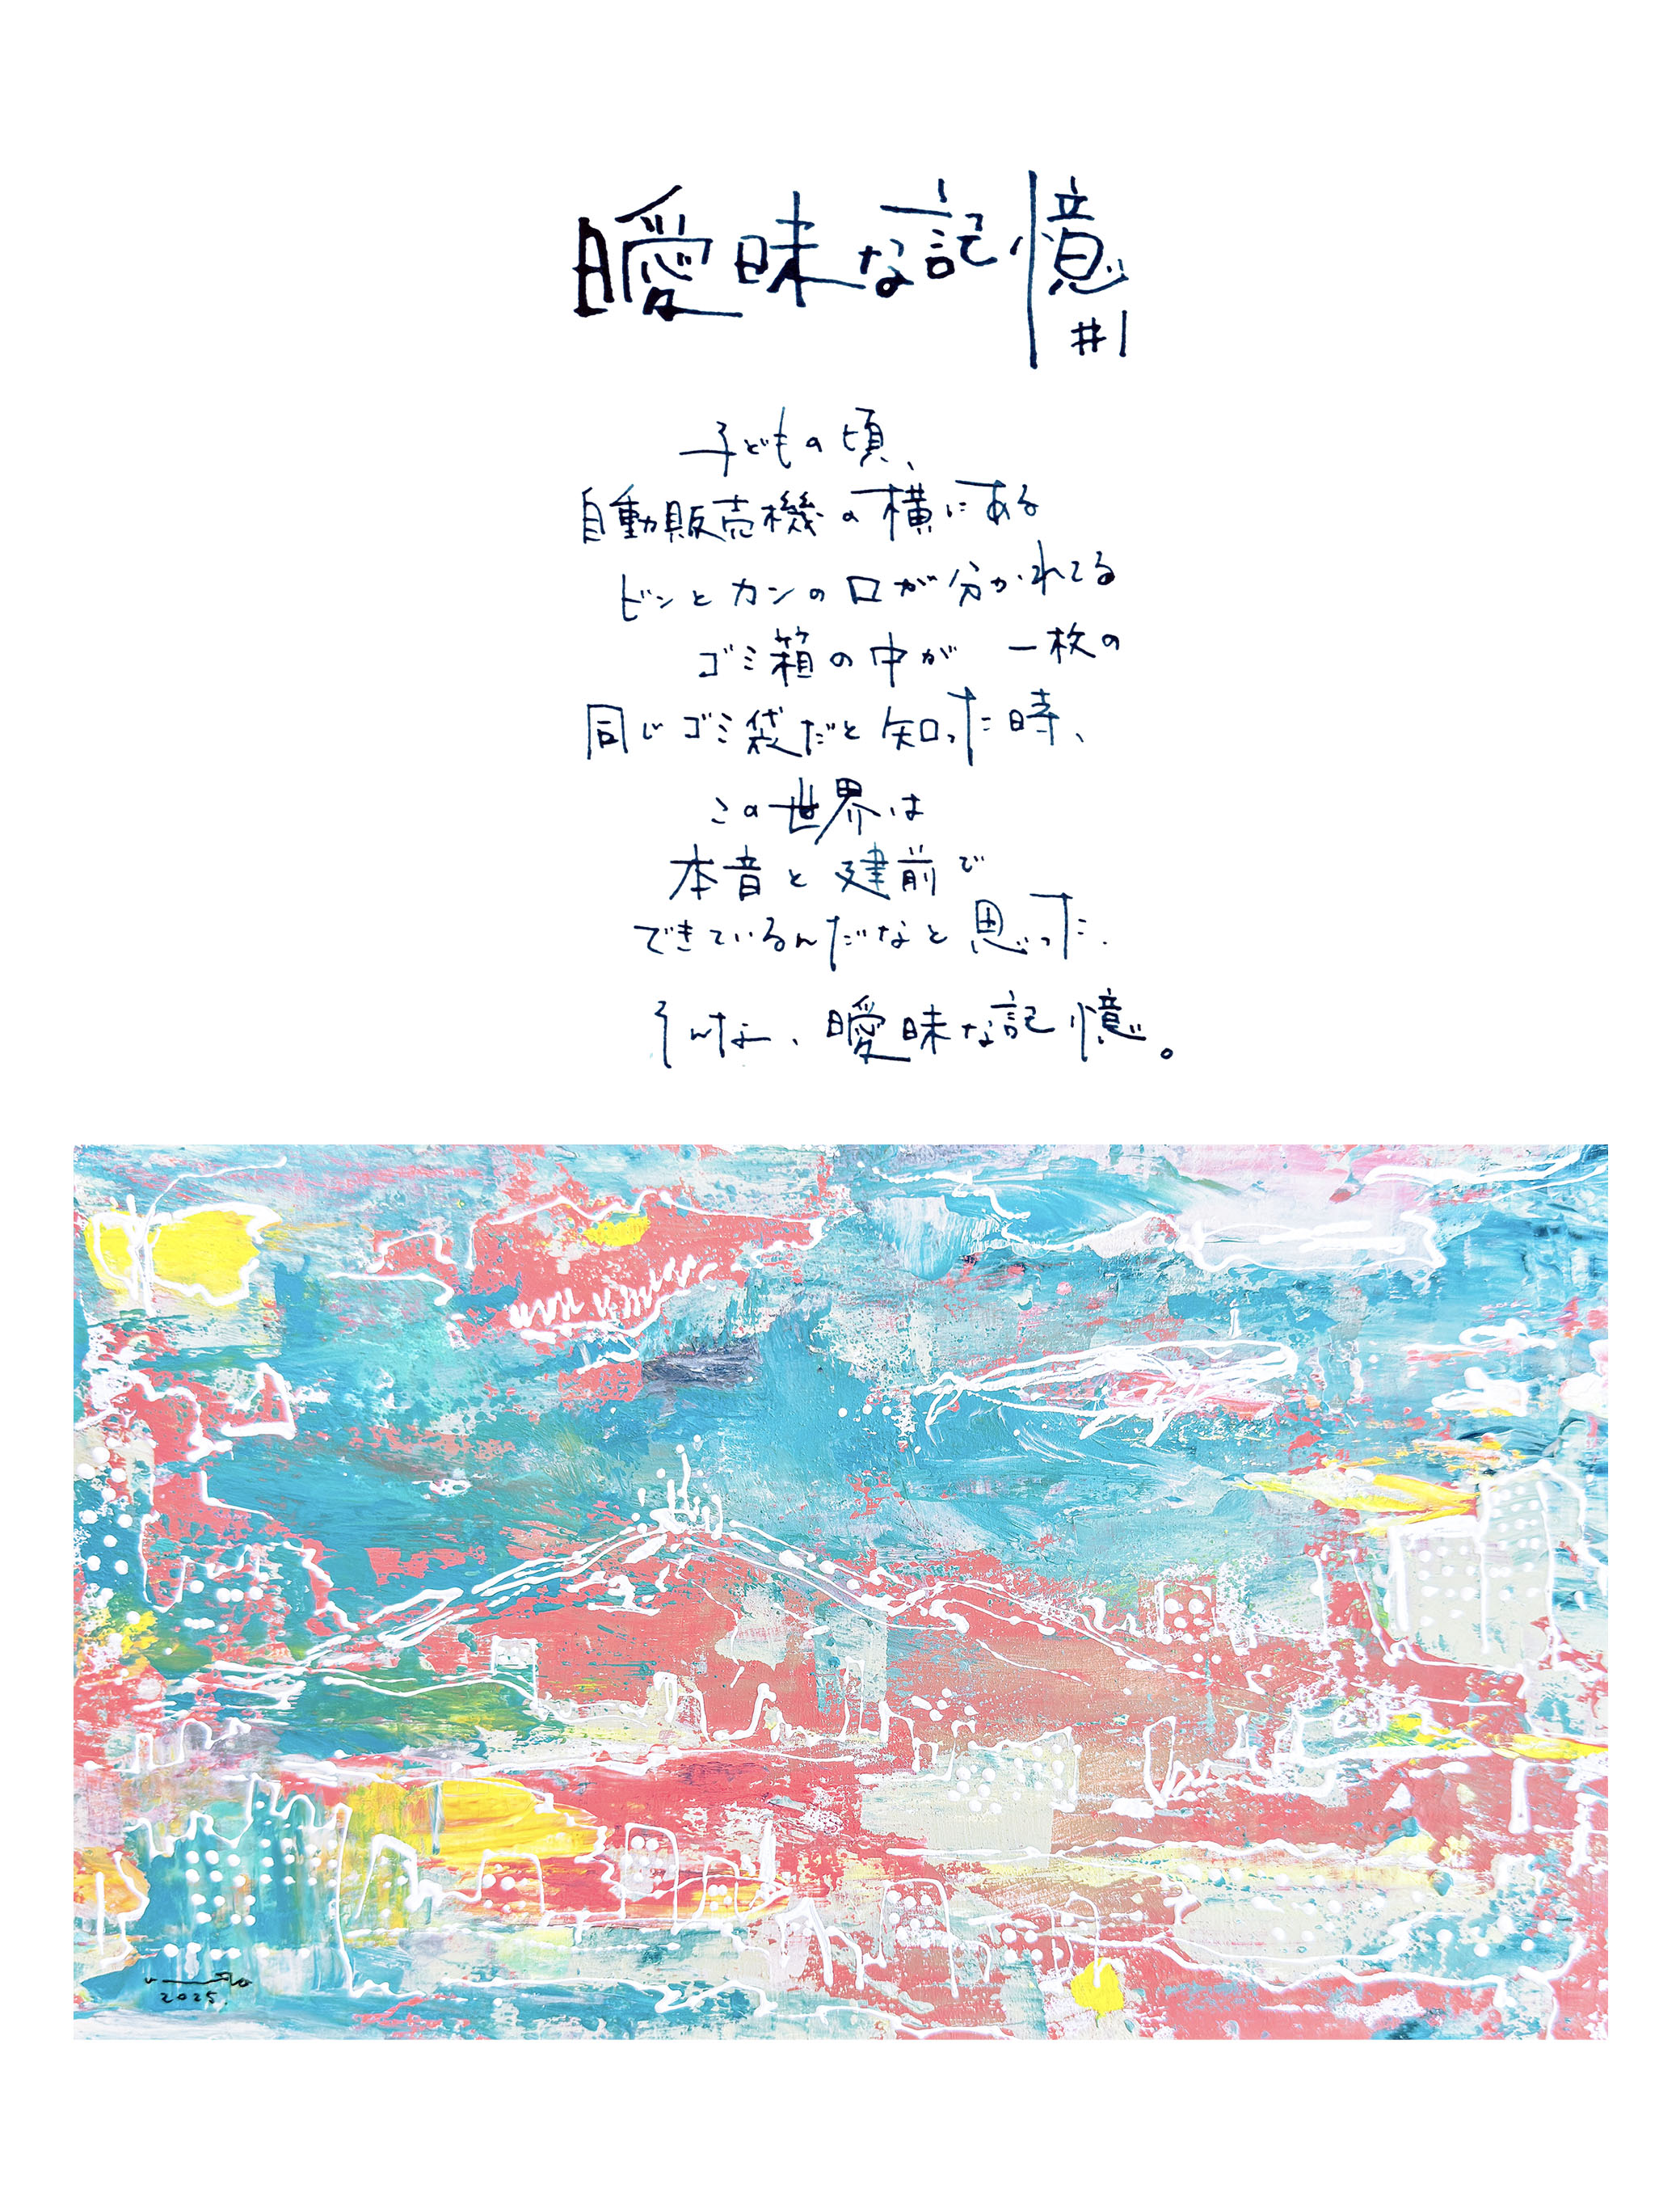 曖昧な記憶
#1
子どもの頃、
自動販売機の横にある
ビンとカンの口が分かれてる
ゴミ箱の中が 一枚の
同じゴミ袋だと知った時、
この世界は
本音と建前で
できているんだなと思った.
そんな、曖昧な記憶。
2025.